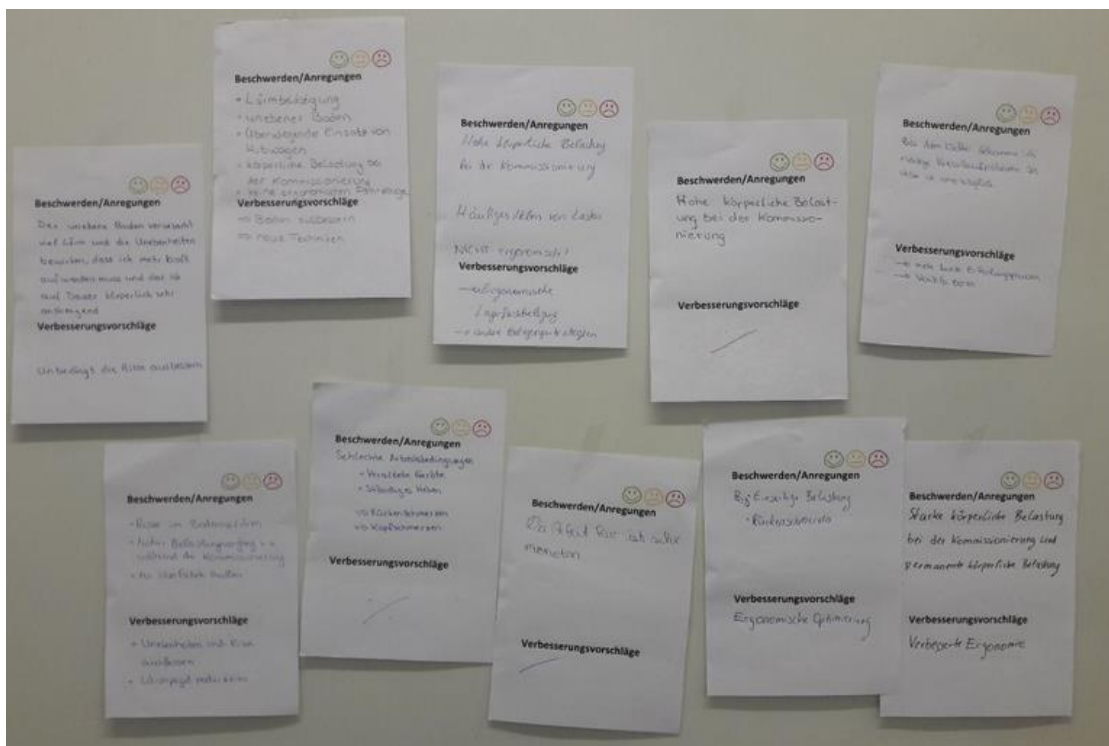 Beschwerden/Anregungen
Der unebene Boden verursacht
viel Lärm und die Unebenheiten
bewirken, dass ich mehr Kraft
aufwenden muss und das ist
auf Dauer körperlich sehr
anstrengend
Verbesserungsvorschläge
Unbedingt die Risse ausbessern
Beschwerden/Anregungen
• Lärmbelästigung
• unebener Boden
• Überwiegende Einsatz von
Hubwagen
• körperliche Belastung bei
der Kommissionierung
• keine ergonomischen Fahrzeuge
Verbesserungsvorschläge
⇒ Boden ausbessern
⇒ neue Techniken
Beschwerden/Anregungen
Hohe körperliche Belastung
bei der Kommissionierung
Häufiges Heben von Lasten
NICHT ergonomisch!
Verbesserungsvorschläge
→ ergonomische
→ andere
Beschwerden/Anregungen
Hohe körperliche Belast-
ung bei der Kommissio-
nierung
Verbesserungsvorschläge
Beschwerden/Anregungen
Bei dem
ist unerträglich
Verbesserungsvorschläge
→ mehr
→
Beschwerden/Anregungen
• Risse im Boden
während der Kommissionierung
Verbesserungsvorschläge
• Unebenheiten und Risse
• Lärmpegel reduzieren
Beschwerden/Anregungen
Schlechte Arbeitsbedingungen
• Veraltete Geräte
• Ständiges Heben
⇒ Rückenschmerzen
⇒ Kopfschmerzen
Verbesserungsvorschläge
Beschwerden/Anregungen
ist sehr
monoton
Verbesserungsvorschläge
Beschwerden/Anregungen
Einseitige Belastung
Verbesserungsvorschläge
Ergonomische Optimierung
Beschwerden/Anregungen
Starke körperliche Belastung
bei der Kommissionierung und
permanente körperliche Belastung
Verbesserungsvorschläge
Verbesserte Ergonomie